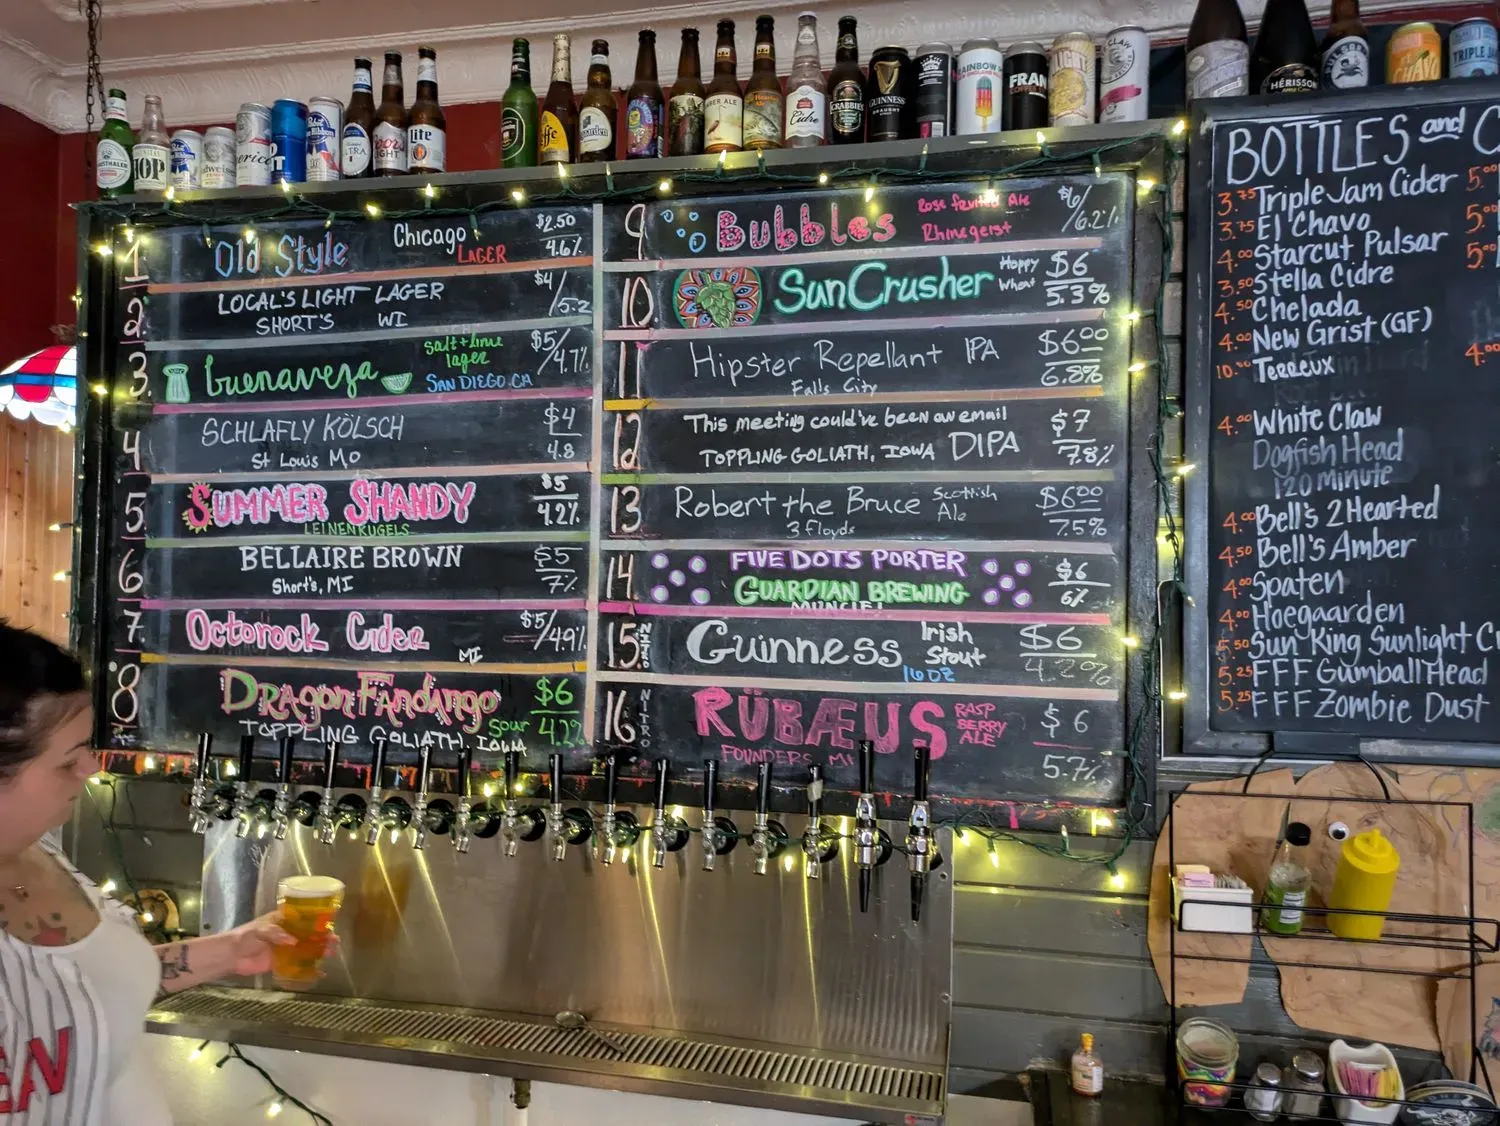 1 Old Style Chicago LAGER $2.50 4.6%
2. LOCAL'S LIGHT LAGER $4/5.2
SHORT'S WI
3. buenaveza salt + lime lager $5/4.7%
SAN DIEGO, CA
4 SCHLAFLY KÖLSCH $4
St Louis MO 4.8
5. SUMMER SHANDY $5
LEINENKUGELS 4.2%
6. BELLAIRE BROWN $5
Short's, MI 7%
7. Octorock Cider $5/4.9%
MI
8 DRAGON FANDANGO $6
TOPPLING GOLIATH, IOWA Sour 4.2%
9 Bubbles Rose fruited Ale $6/6.2%
Rhinegeist
10. SunCrusher Hoppy Wheat $6 5.3%
11 Hipster Repellant IPA $6.00
Falls City 6.8%
12 This meeting could've been an email $7
TOPPLING GOLIATH, IOWA DIPA 7.8%
13 Robert the Bruce Scottish Ale $6.00
3 floyds 7.5%
14 FIVE DOTS PORTER $6
GUARDIAN BREWING 6%
15 NITRO Guinness Irish Stout $6
16 OZ 4.2%
16 NITRO RÜBÆUS RASPBERRY ALE $6
FOUNDERS MI 5.7%
BOTTLES and C
3.75 Triple Jam Cider 5.00
3.75 El Chavo
4.00 Starcut Pulsar
3.50 Stella Cidre
4.50 Chelada
4.00 New Grist (GF)
10.00 Terreux
4.00 White Claw
Dogfish Head
120 minute
4.00 Bell's 2 Hearted
4.50 Bell's Amber
4.00 Spaten
4.00 Hoegaarden
5.50 Sun King Sunlight C
5.25 FFF Gumball Head
5.25 FFF Zombie Dust
5.00
5.00
4.00
HOP
lite
Cidre
CRABBIE'S
GUINNESS
FRAN
CLAW
HÉRISSON
CHAVO
TRIPLE JAM